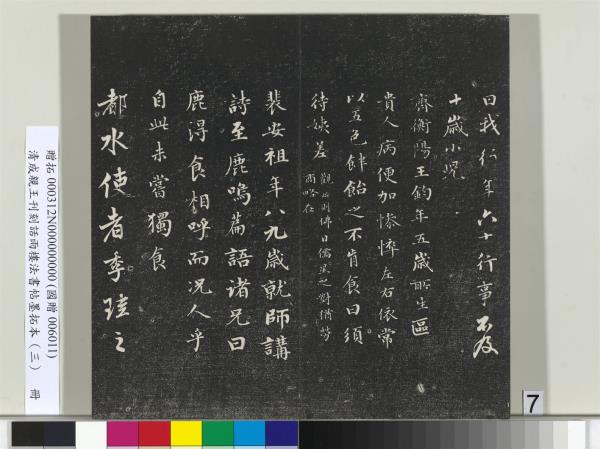 曰我行年六十行事不及
十歲小児
齊衡陽王鈞年五歲所生區
貴人病便加慘悴左右依常
以五色飴飴之不肯食曰須
待姨差
裴安祖年八九歲就師講
詩至鹿鳴篇語諸兄曰
鹿得食相呼而况人乎
自此未嘗獨食
都水使者季珪之
贈拓 000312N000000000 (國贈 006011)
清成親王刊刻詒雨樓法書帖墨拓本（三） 冊
7